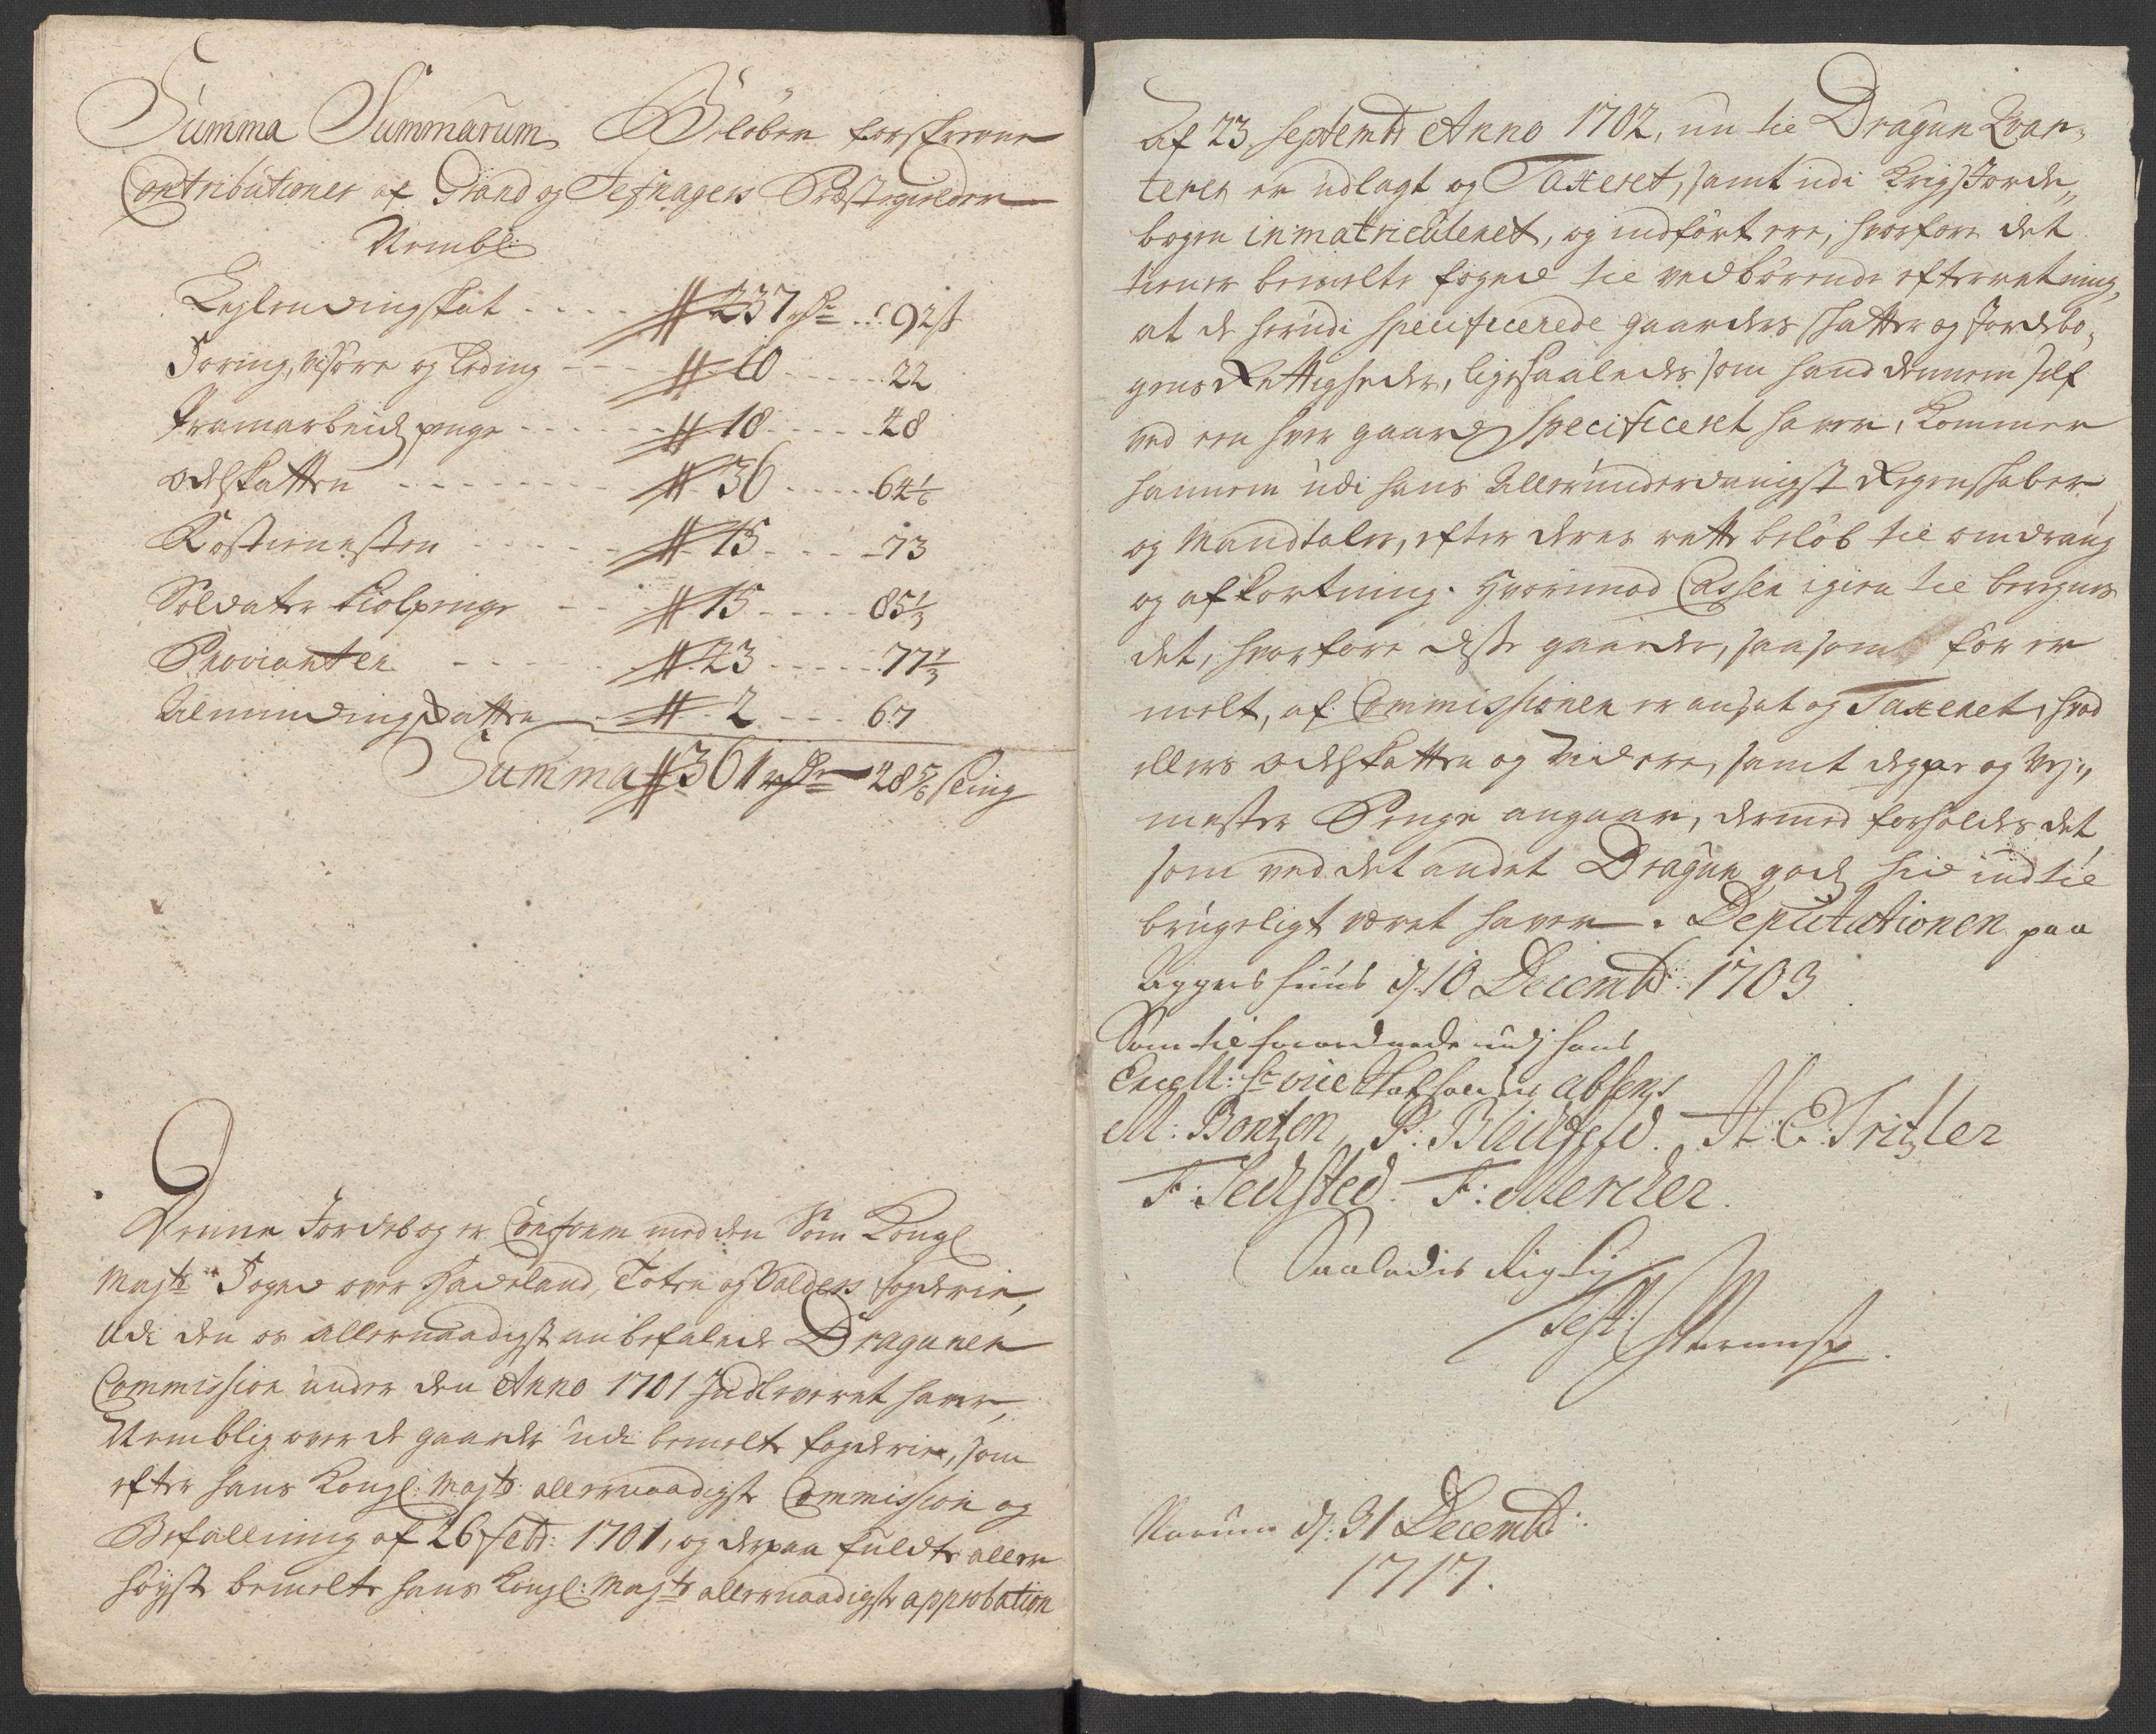 Summa Summarum Beløber forschrevne
Contributioner af Grand og Jefnagers Præstegielder
Nembl:
Leylendingskat . . . . 237 rdr . . 92 s
Foring, Visøre og Leding - - - 10 - - - - 22
Framarbeidz penge - - - - - 18 - - - - 48
Odelskatten - - - - - - - 36 - - - - 64 1/6
Rostienesten - - - - - 15 - - - - 73
Soldater Kiolpenge - - 15 - - - - 85 1/3
Provianten - - - - - 23 - - - - 77 1/3
Almindingskatten - - 2 - - - 67
Summa 361 rdr 48 5/6 sling
Denne Jordebog er Conform med den Som Kongl
Mayts Foged over Hadeland, Toten og Valders fogderie,
Udi den os allernaadigst anbefalede Dragoner
Commission under den Anno 1701 Indleveret haver,
Nemblig over de gaarde udi bemelte fogderie, som
efter hans Kongl: Mayts: allernaadigste Commission og
Befalling af 26 Febr: 1701, og derpaa fuldte aller
høyst bemelte hans Kongl: Mayts allernaadigste approbation
Af 23 Septembr Anno 1702, nu til Dragun Qvar-
terer er udlagt og Taxeret, samt udi Krigs Jorde-
bogen inmatriculeret, og indført ere, hvorfore det
tiener bemelte foged til vedbørende efterretning,
at de herudi specificerede gaarders skatter og Jordebo-
gens Rettigheder, ligesaaledes som hand dennem self
ved een hver gaard specificeret haver, Kommer
hannem udi hans Allerunderdanigst Regenskaber
og Mandtaler, efter deres rette beløb til omdrag
og afkortning. Hvorimod Cassen igien til beregnes
det, hvorfore disse gaarder, saasom før er
melt, af Commissionen er ansat og Taxeret, hvad
ellers Odelskatten og Videre, samt degne og Vej-
mester Penge angaar, dermed forholdes det
som ved det andet Dragun godz hid indtil
brugeligt været haver. Deputationen paa
Aggershuus d. 10 Decembr: 1703
Som til forordnede udj hans
Excell: Hr vice Statholders absens
M: Bontzen, P: Bleichfeld. H: C: Tritzler
F: Tedsted. F: Mercker.
Saaledis Rigtig
Test:
Narum d: 31 Decembr:
1717.